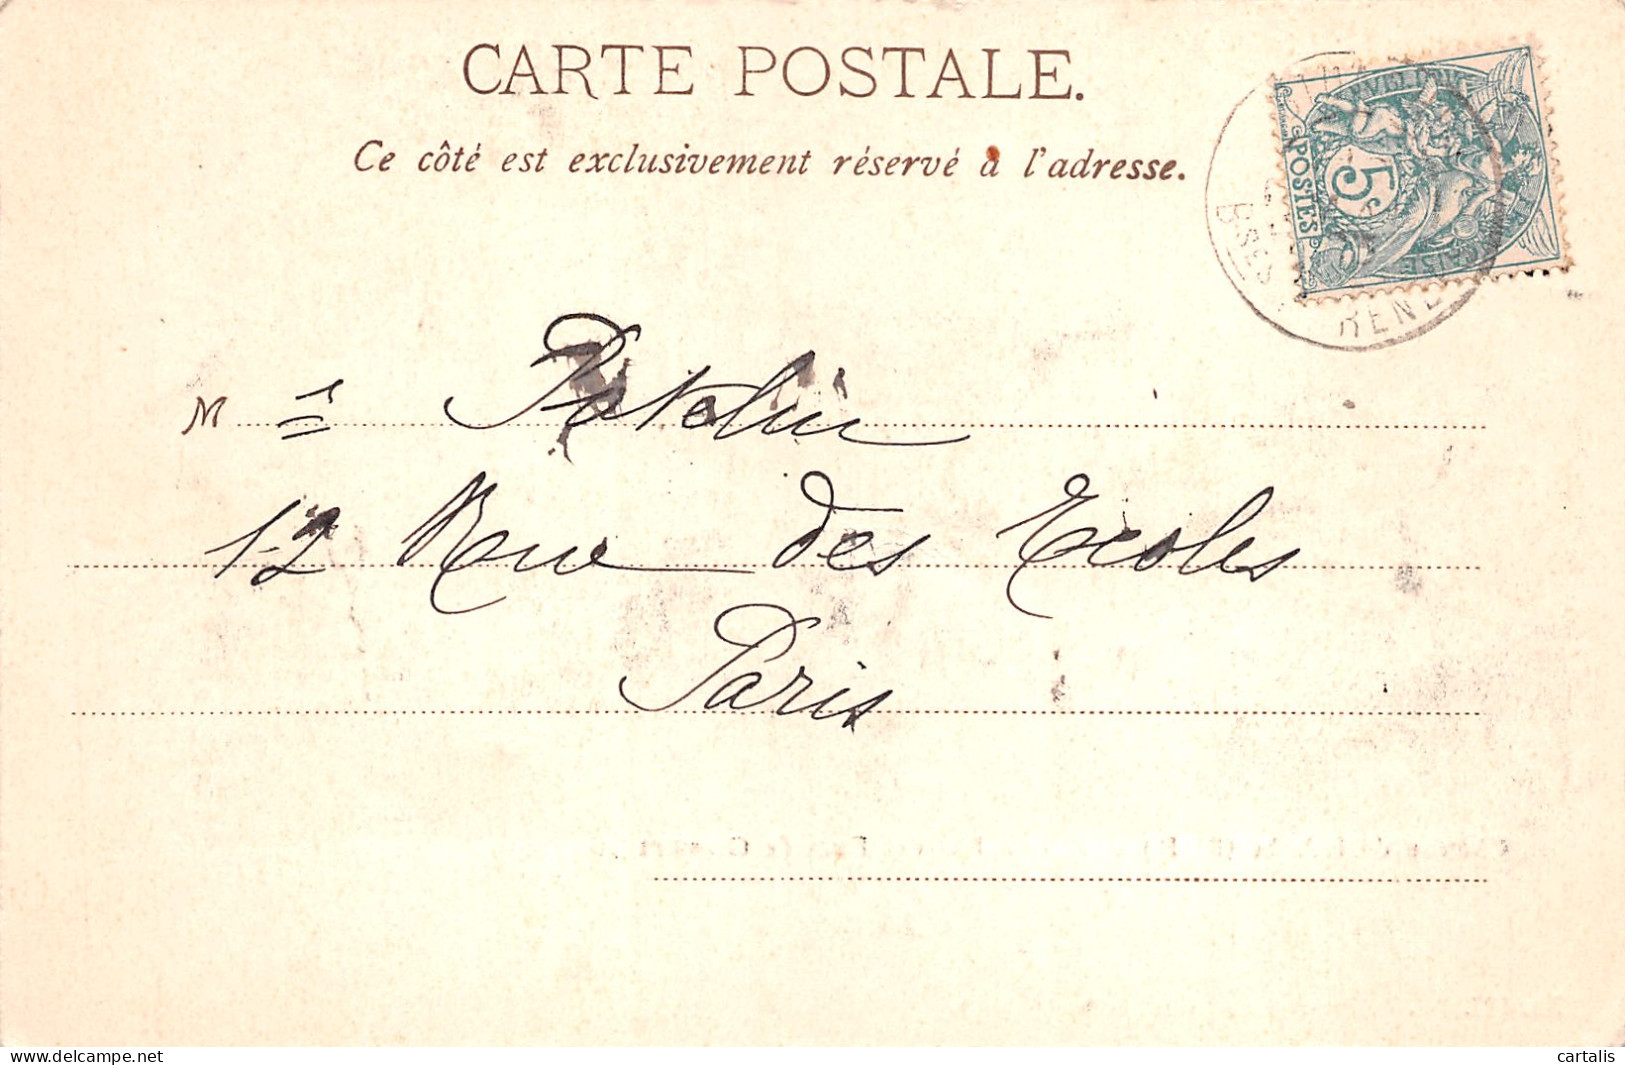 CARTE POSTALE.
Ce côté est exclusivement réservé à l'adresse.
5c
POSTES
BSES PYRENE
M r Patelin
12 Rue des Ecoles
Paris
www.delcampe.net
cartalis